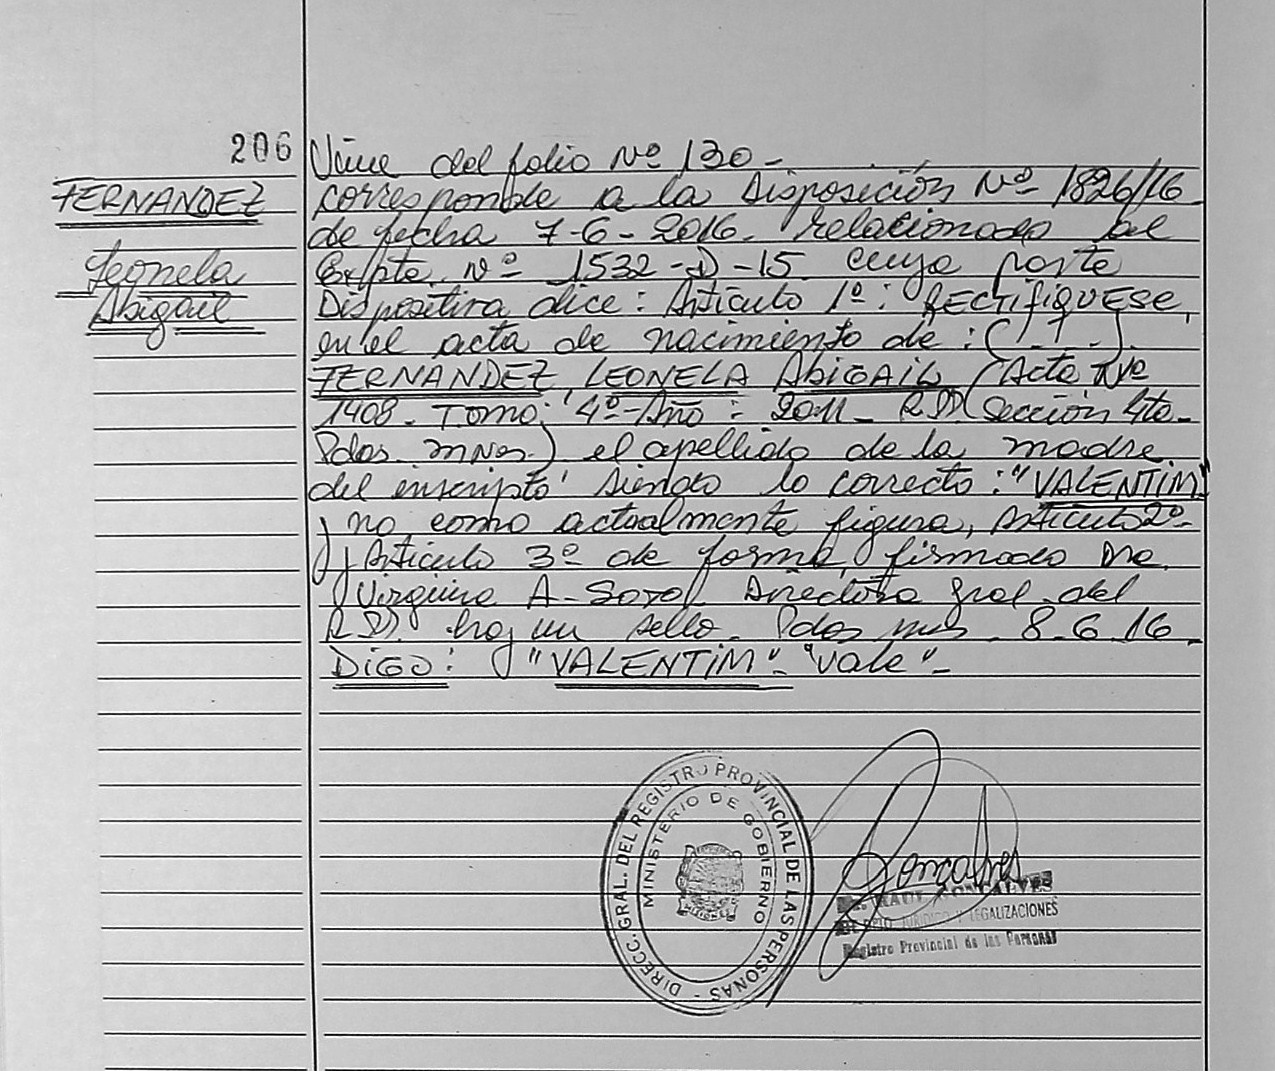 206
FERNANDEZ
Leonela
Abigail
Viene del folio Nº 130-
corresponde a la Disposición Nº 1826/16
de fecha 7-6-2016. relacionado al
Expte. Nº 1532-D-15 cuya parte
Dispositiva dice: Artículo 1º: RECTIFIQUESE,
en el acta de nacimiento de: (...).
FERNANDEZ, LEONELA ABIGAIL (Acta Nº
1408. Tomo: 4º-Año: 2011- R.P.P. (Sección 4ta-
Pdas. mnes.) el apellido de la madre
del inscripto' siendo lo correcto: "VALENTIM"
y no como actualmente figura, Artículo 2º-
y Artículo 3º de forma, firmado Dra.
Virginia A- Directora Gral. del
R.P.P. hay un sello- Pdas mnes- 8-6-16-
DIGO: "VALENTIM"- "Vale"-
DIRECC. GRAL. DEL REGISTRO PROVINCIAL DE LAS PERSONAS -
MINISTERIO DE GOBIERNO
Goncalves
RAUL GONCALVES
DPTO JURIDICO Y LEGALIZACIONES
Registro Provincial de las Personas